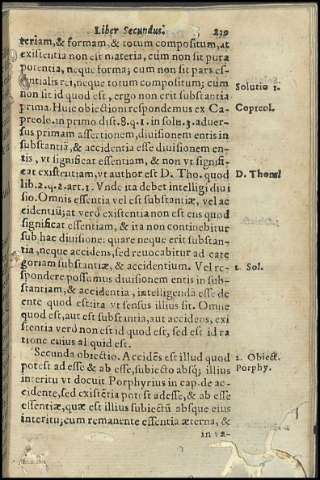 Liber Secundus. 239
teriam, & formam, & totum compositum, at
existentia non est materia, cum non sit pura
potentia, neque forma; cum non sit pars es-
sentialis rei, neque totum compositum; cum
non sit id quod est, ergo non erit substantia
prima. Huic obiectioni respondemus ex Ca-
preole. in primo dist. 8. q. 1. in solu. 3. aduer-
sus primam assertionem, diuisionem entis in
substantiā, & accidentia esse diuisionem en-
tis, vt significat essentiam, & non vt signifi-
cat existentiam, vt author est D. Tho. quod
lib. 2. q. 2. art. 1. Vnde ita debet intelligi diui
sio. Omnis essentia vel est substantiæ, vel ac
cidentiū, at verò existentia non est ens quod
significat essentiam, & ita non continebitur
sub hac diuisione: quare neque erit substan-
tia, neque accidens, sed reuocabitur ad cate
goriam substantiæ, & accidentium. Vel re-
spondere possumus diuisionem entis in sub-
stantiam, & accidentia, intelligenda esse de
ente quod est ita vt sensus illius sit. Omne
quod est, aut est substantia, aut accidens, exi
stentia verò non est id quod est, sed est id ra
tione cuius aliquid est.
Secunda obiectio. Accidēs est illud quod
potest adesse & ab esse, subiecto absq; illius
interitu vt docuit Porphyrius in cap. de ac-
cidente, sed existētia potest adesse, & ab esse
essentiæ, quæ est illius subiectū absque eius
interitu; cum remanente essentia æterna, &
in va-
Solutio 1.
Capreol.
D. Thom.
2. Sol.
2. Obiect.
Porphy.